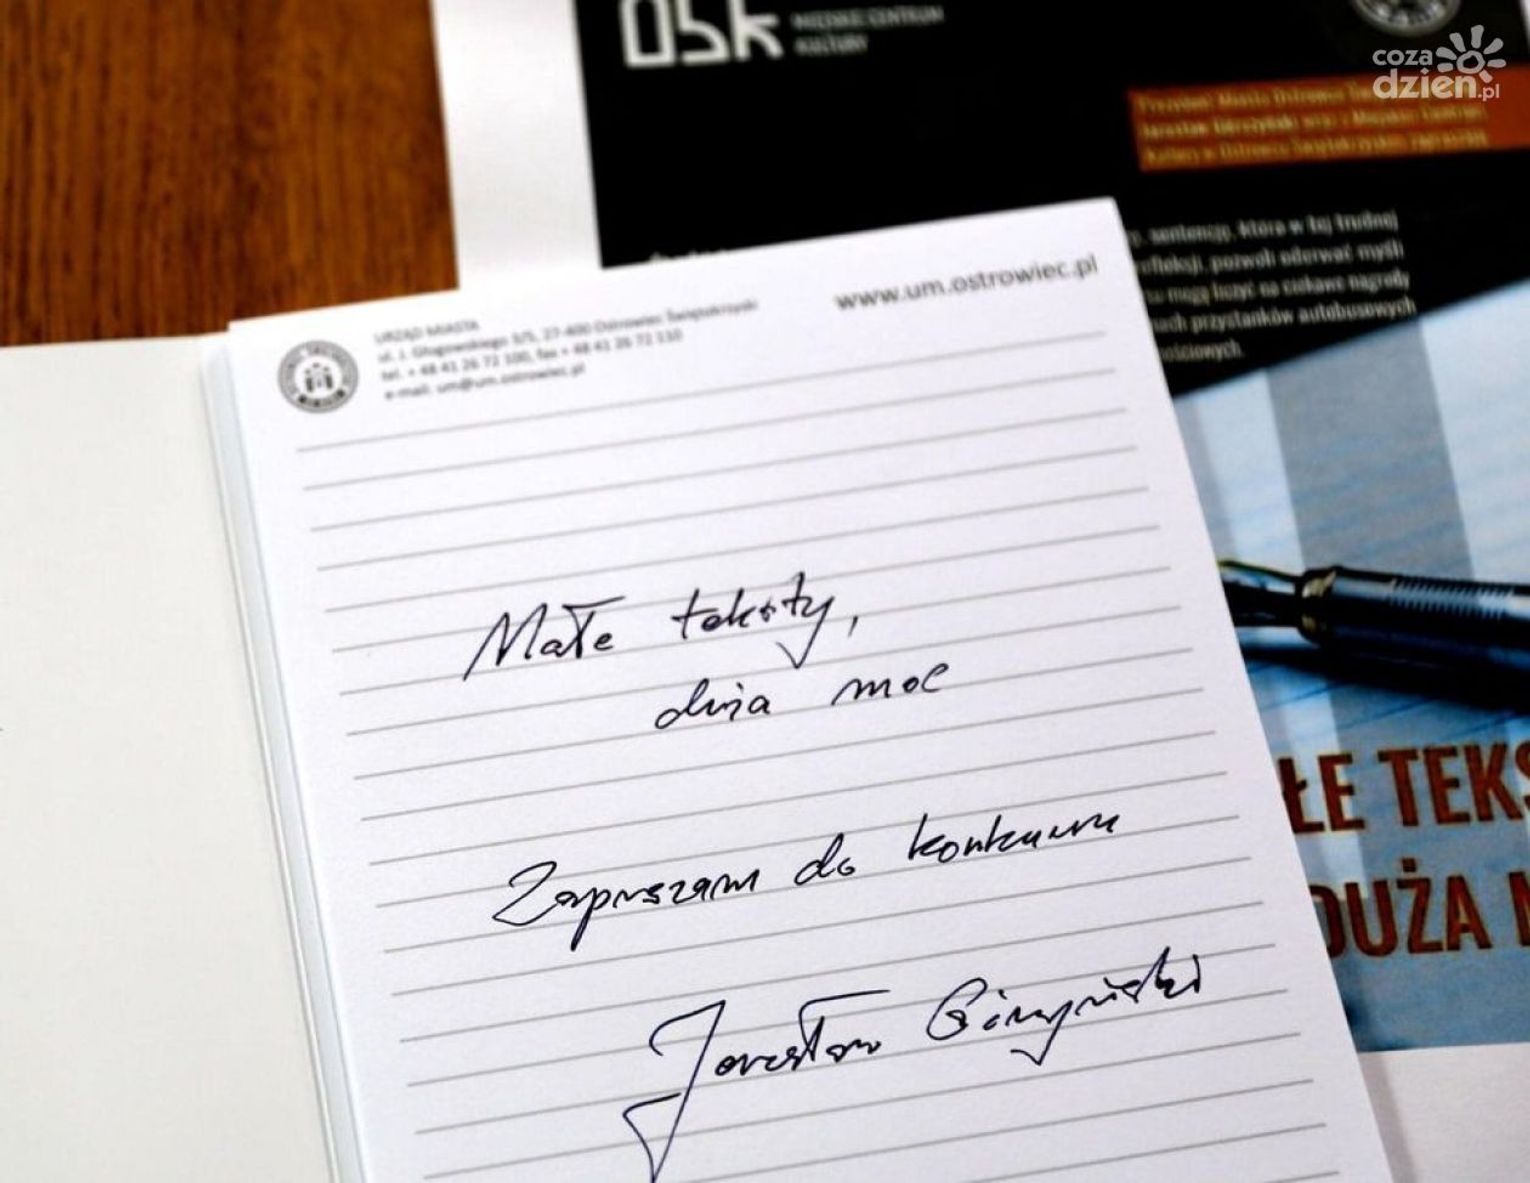 OSK MIEJSKIE CENTRUM
KULTURY
coza
dzien.pl
Prezydent Miasta Ostrowca
Jarosław Górczyński wraz z Miejskim Centrum
Kultury w Ostrowcu Świętokrzyskim zapraszają
sentencję, która w tej trudnej
refleksji, pozwoli oderwać myśli
mogą liczyć na ciekawe nagrody
przystanków autobusowych
www.um.ostrowiec.pl
URZĄD MIASTA
ul. J. Głogowskiego 3/5, 27-400 Ostrowiec Świętokrzyski
tel. + 48 41 26 72 100, fax + 48 41 26 72 110
e-mail: um@um.ostrowiec.pl
Małe teksty,
duża moc
Zapraszam do konkursu
Jarosław Górczyński
ŁE TEKS
DUŻA M